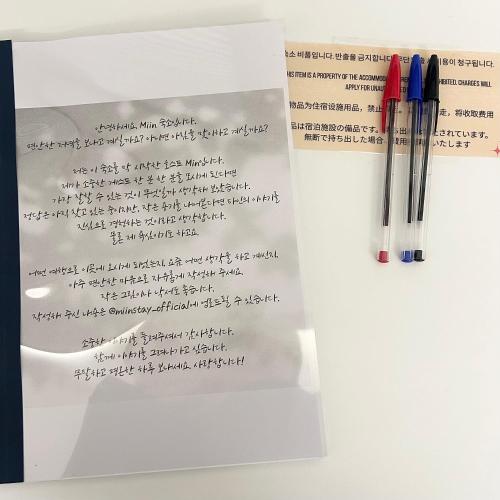 안녕하세요, Miin 숙소입니다.
편안한 저녁을 보내고 계실까요? 아니면 아침을 맞이하고 계실까요?
저는 이 숙소를 막 시작한 호스트 Miin입니다.
제가 소중한 게스트 한 분 한 분을 모시게 된다면
가장 잘할 수 있는 것이 무엇일까 생각해 보았습니다.
정답은 아직 찾고 있는 중이지만, 작은 용기를 내어본다면 타인의 이야기를
진심으로 경청하는 것이라고 생각합니다.
물론 제 욕심이기도 하고요.
어떤 여행으로 이곳에 오시게 되었는지, 요즘 어떤 생각을 하고 계신지,
아주 편안한 마음으로 자유롭게 작성해 주세요.
작은 그림이나 낙서도 좋습니다.
작성해 주신 내용은 @miinstay_official에 업로드될 수 있습니다.
소중한 이야기를 들려주셔서 감사합니다.
함께 이야기를 그려나가고 싶습니다.
무탈하고 평온한 하루 보내세요. 사랑합니다!
숙소 비품입니다. 반출을 금지합니다. 용이 청구됩니다.
THIS ITEM IS A PROPERTY OF THE ACCOMMOD HIBITED. CHARGES WILL
APPLY FOR UNAU
物品为住宿设施用品，禁止 走，将收取费用
品は宿泊施設の備品です。 されています。
無断で持ち出した場合、 用 いたします